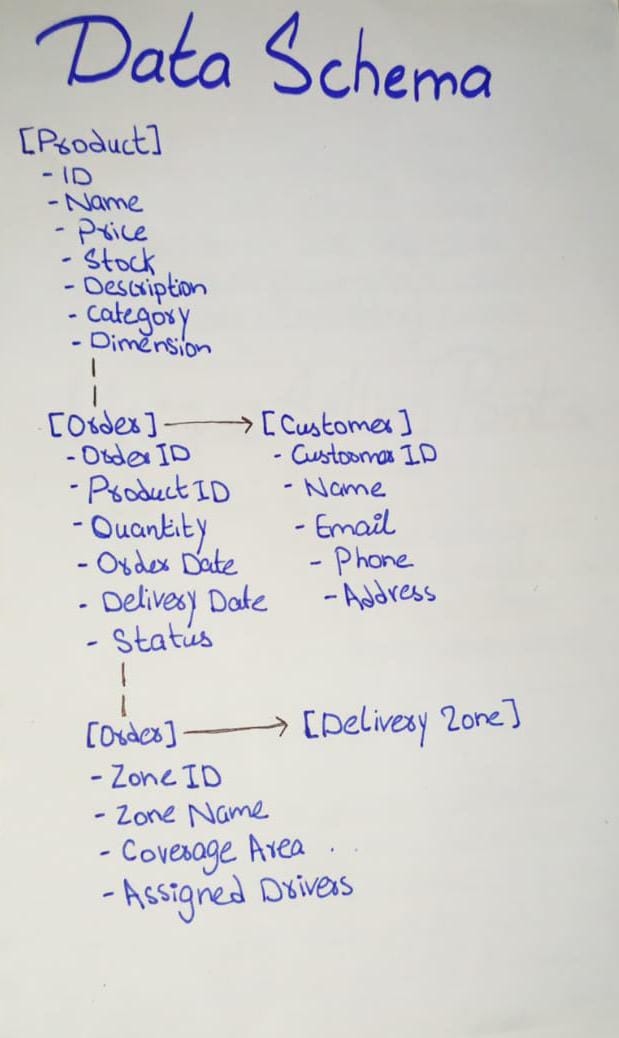 Data Schema
[Product]
- ID
- Name
- Price
- Stock
- Description
- Category
- Dimension
[Order] → [Customer]
- Order ID
- Product ID
- Quantity
- Order Date
- Delivery Date
- Status
- Custoomer ID
- Name
- Email
- Phone
- Address
[Order] → [Delivery Zone]
- Zone ID
- Zone Name
- Coverage Area
- Assigned Drivers